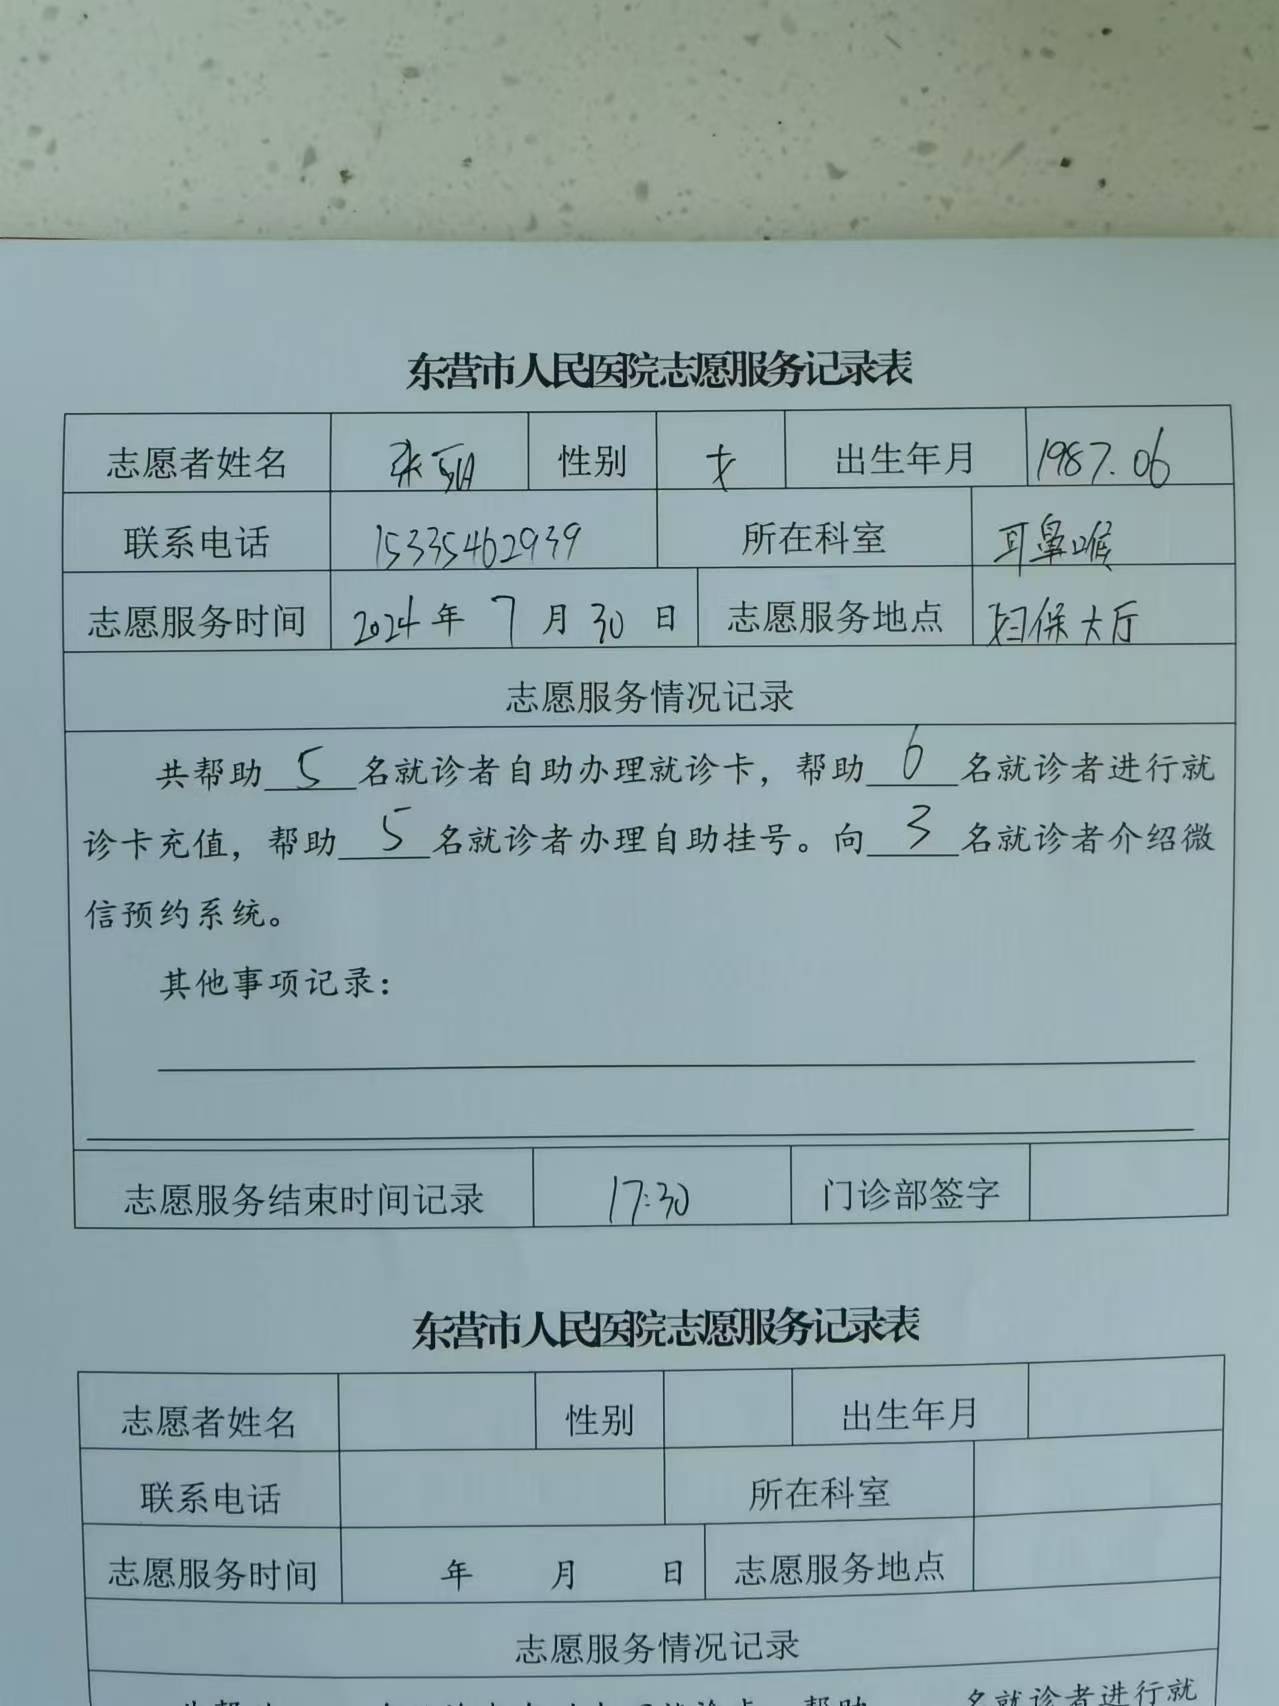 东营市人民医院志愿服务记录表
志愿者姓名 张 性别 女 出生年月 1987.06
联系电话 15335462939 所在科室 耳鼻喉
志愿服务时间 2024年 7 月 30 日 志愿服务地点 妇保大厅
志愿服务情况记录
共帮助 5 名就诊者自助办理就诊卡，帮助 6 名就诊者进行就
诊卡充值，帮助 5 名就诊者办理自助挂号。向 3 名就诊者介绍微
信预约系统。
其他事项记录：
志愿服务结束时间记录 17:30 门诊部签字
东营市人民医院志愿服务记录表
志愿者姓名 性别 出生年月
联系电话 所在科室
志愿服务时间 年 月 日 志愿服务地点
志愿服务情况记录
名就诊者进行就